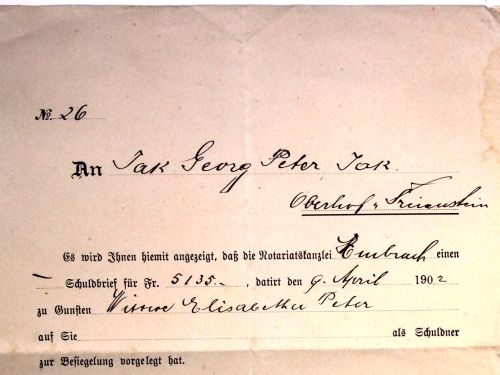 No. 26
An Jak Georg Peter Jak.
Oberhof, Freienstein
Es wird Ihnen hiemit angezeigt, daß die Notariatskanzlei Embrach einen
Schuldbrief für Fr. 5135.–, datirt den 9. April 1902
zu Gunsten Wittwe Elisabetha Peter
auf Sie als Schuldner
zur Besiegelung vorgelegt hat.